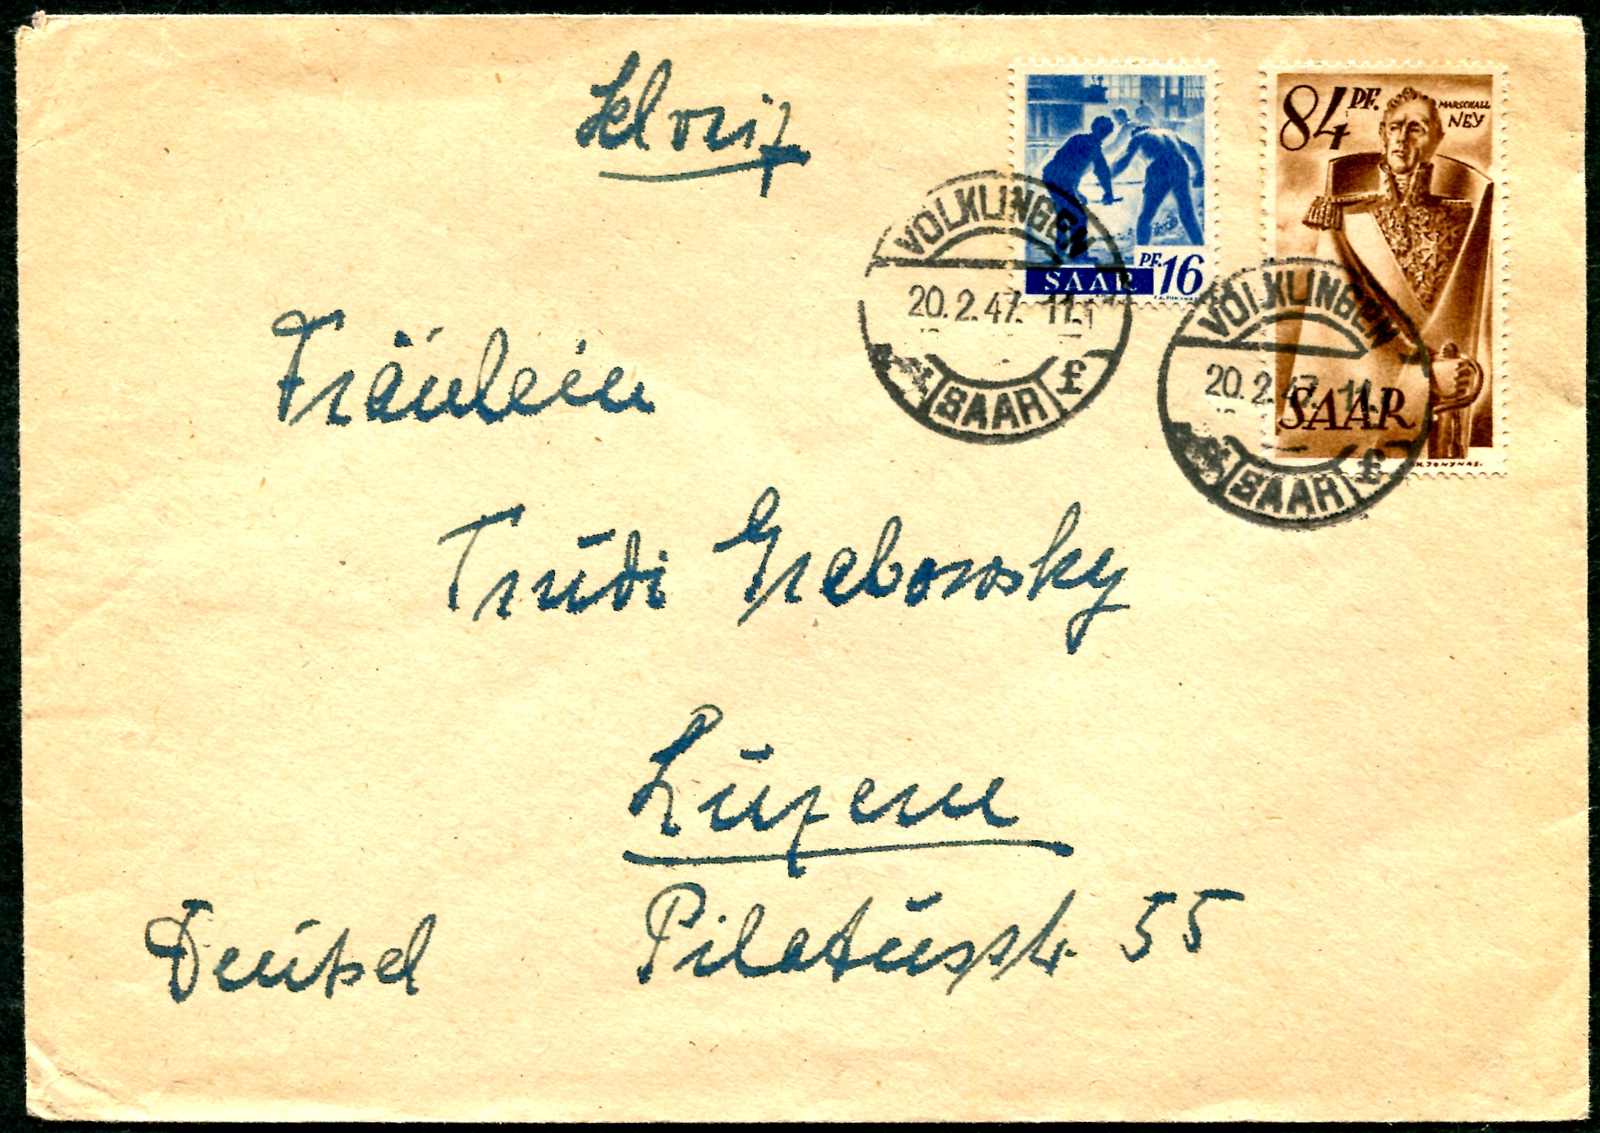 Schweiz
84 PF. MARSCHALL NEY
SAAR PF. 16
SAAR
VÖLKLINGEN
20.2.47. 11-1
SAAR f
VÖLKLINGEN
20.2.47. 11-1
SAAR f
Fräulein
Trudi Grabowsky
Luzern
Pilatusstr. 55
Deutsch